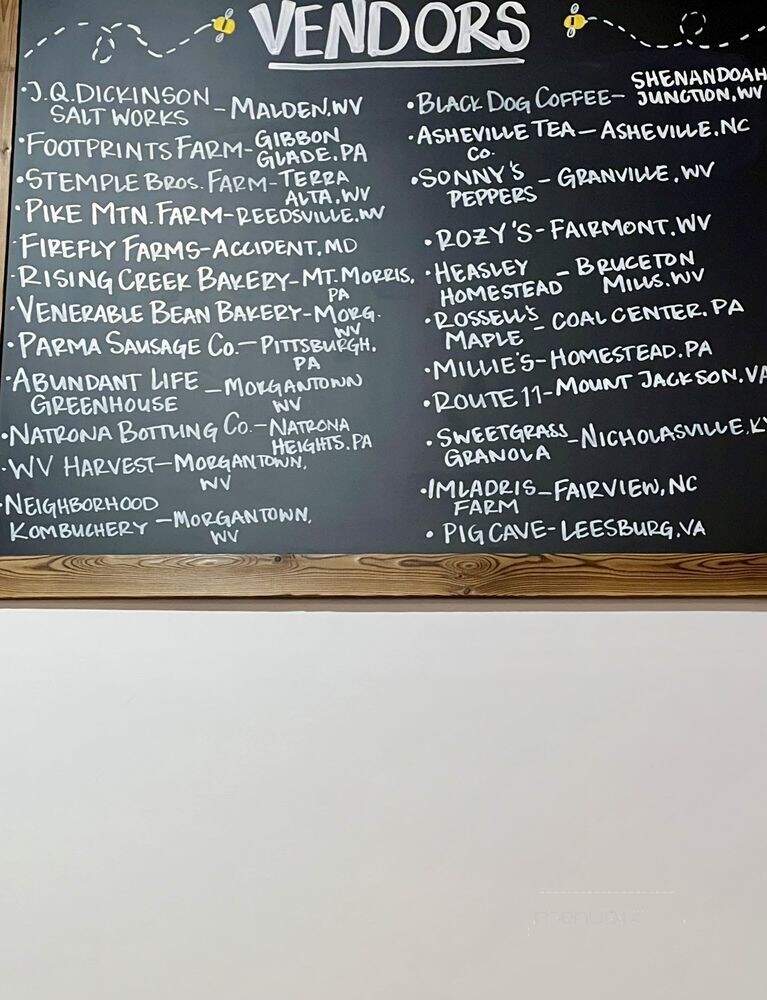 VENDORS
•J.Q.DICKINSON
SALT WORKS – MALDEN.WV
•FOOTPRINTS FARM-GIBBON
GLADE.PA
•STEMPLE BROS. FARM-TERRA
ALTA.WV
•PIKE MTN. FARM-REEDSVILLE.WV
•FIREFLY FARMS-ACCIDENT.MD
•RISING CREEK BAKERY-MT. MORRIS,
PA
•VENERABLE BEAN BAKERY-MORG.
WV
•PARMA SAUSAGE CO.—PITTSBURGH,
PA
•ABUNDANT LIFE
GREENHOUSE –MORGANTOWN
WV
•NATRONA BOTTLING CO.–NATRONA
HEIGHTS.PA
•WV HARVEST–MORGANTOWN,
WV
•NEIGHBORHOOD
KOMBUCHERY –MORGANTOWN,
WV
•BLACK DOG COFFEE– SHENANDOAH
JUNCTION,WV
•ASHEVILLE TEA–ASHEVILLE.NC
CO.
•SONNY'S
PEPPERS – GRANVILLE.WV
•ROZY'S-FAIRMONT.WV
•HEASLEY
HOMESTEAD –BRUCETON
MILLS.WV
•ROSSELL'S
MAPLE – COAL CENTER.PA
•MILLIE'S-HOMESTEAD.PA
•ROUTE 11-MOUNT JACKSON.VA
•SWEETGRASS
GRANOLA –NICHOLASVILLE.KY
•IMLADRIS–FAIRVIEW,NC
FARM
• PIG CAVE-LEESBURG.VA